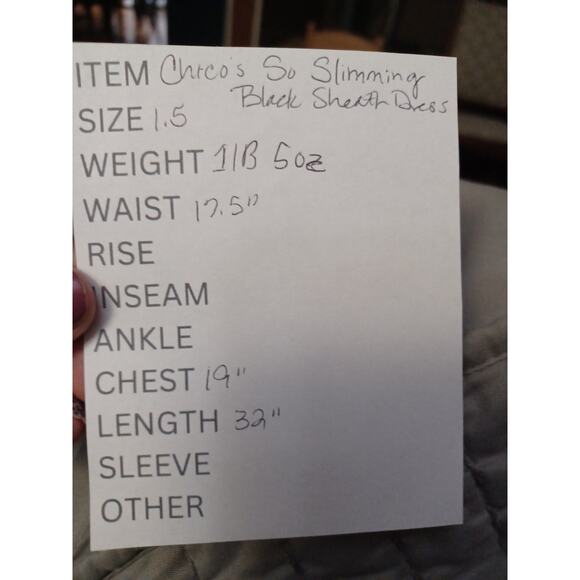 ITEM Chico's So Slimming
Black Sheath Dress
SIZE 1.5
WEIGHT 1lB 5oz
WAIST 17.5"
RISE
INSEAM
ANKLE
CHEST 19"
LENGTH 32"
SLEEVE
OTHER